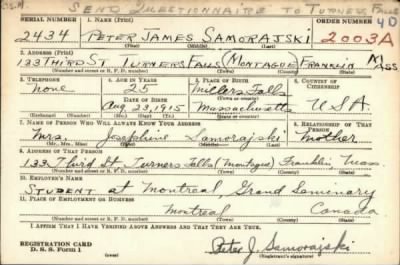 SENT QUESTIONNAIRE TO TURNERS FALLS
SERIAL NUMBER 1. NAME (Print) ORDER NUMBER
2434 PETER JAMES SAMORAJSKI 2003A
(First) (Middle) (Last)
2. ADDRESS (Print)
133 THIRD ST TURNERS FALLS (MONTAGUE) FRANKLIN MASS
(Number and street or R. F. D. number) (Town) (County) (State)
3. TELEPHONE 4. AGE IN YEARS 5. PLACE OF BIRTH 6. COUNTRY OF CITIZENSHIP
None 25 Millers Falls
DATE OF BIRTH
Aug 23, 1915 Massachusetts U.S.A.
(Exchange) (Number) (Mo.) (Day) (Yr.) (State or country)
7. NAME OF PERSON WHO WILL ALWAYS KNOW YOUR ADDRESS 8. RELATIONSHIP OF THAT PERSON
Mrs. Josephine Samorajski Mother
(Mr., Mrs., Miss) (First) (Middle) (Last)
9. ADDRESS OF THAT PERSON
133 Third St. Turners Falls (Montague) Franklin, Mass.
(Number and street or R. F. D. number) (Town) (County) (State)
10. EMPLOYER'S NAME
STUDENT at Montreal, Grand Seminary
11. PLACE OF EMPLOYMENT OR BUSINESS
Montreal Canada
(Number and street or R. F. D. number) (Town) (County) (State)
I AFFIRM THAT I HAVE VERIFIED ABOVE ANSWERS AND THAT THEY ARE TRUE.
REGISTRATION CARD
D. S. S. Form 1
Peter J. Samorajski
(Registrant's signature)